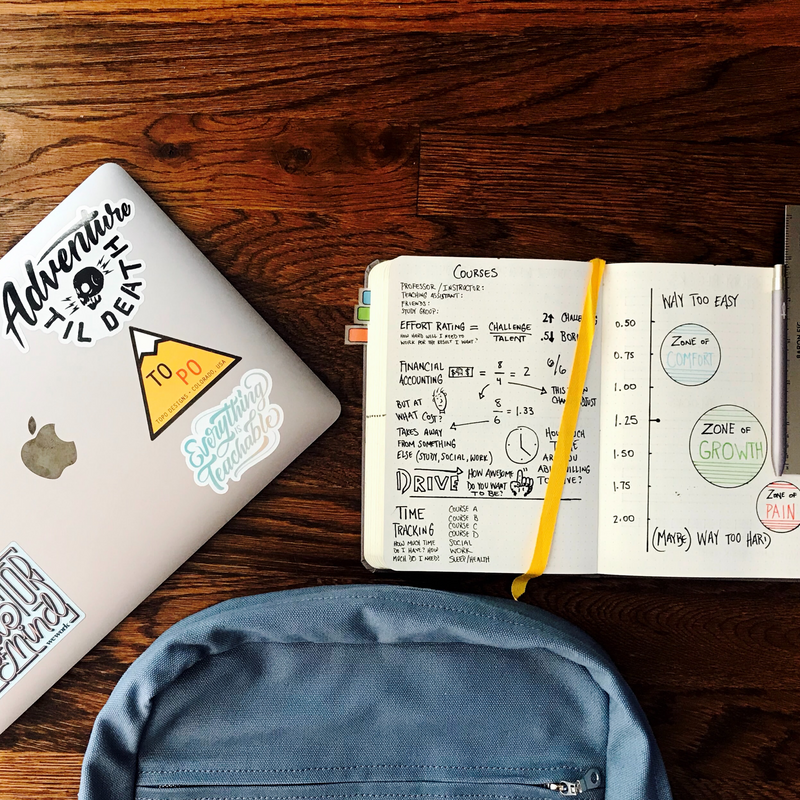 Adventure
TIL DEATH
TO PO
TOPO DESIGNS • COLORADO, USA
Everything
is
Teachable
of Mind
wework
COURSES
PROFESSOR / INSTRUCTOR:
TEACHING ASSISTANT:
FRIENDS:
STUDY GROUP:
EFFORT RATING = CHALLENGE
TALENT
HOW HARD WILL I NEED TO
WORK FOR THE RESULT I WANT?
2↑
.5↓
FINANCIAL
ACCOUNTING
$$$ = 8/4 = 2
6/6
BUT AT
WHAT COST?
8/6 = 1.33
TAKES AWAY
FROM SOMETHING
ELSE (STUDY, SOCIAL, WORK)
DRIVE
HOW AWESOME
DO YOU WANT
TO BE?
TIME
TRACKING
HOW MUCH TIME
DO I HAVE? HOW
MUCH DO I NEED?
COURSE A
COURSE B
COURSE C
COURSE D
SOCIAL
WORK
SLEEP/HEALTH
WAY TOO EASY
0.50
0.75
1.00
1.25
1.50
1.75
2.00
ZONE OF
COMFORT
ZONE OF
GROWTH
ZONE OF
PAIN
(MAYBE) WAY TOO HARD